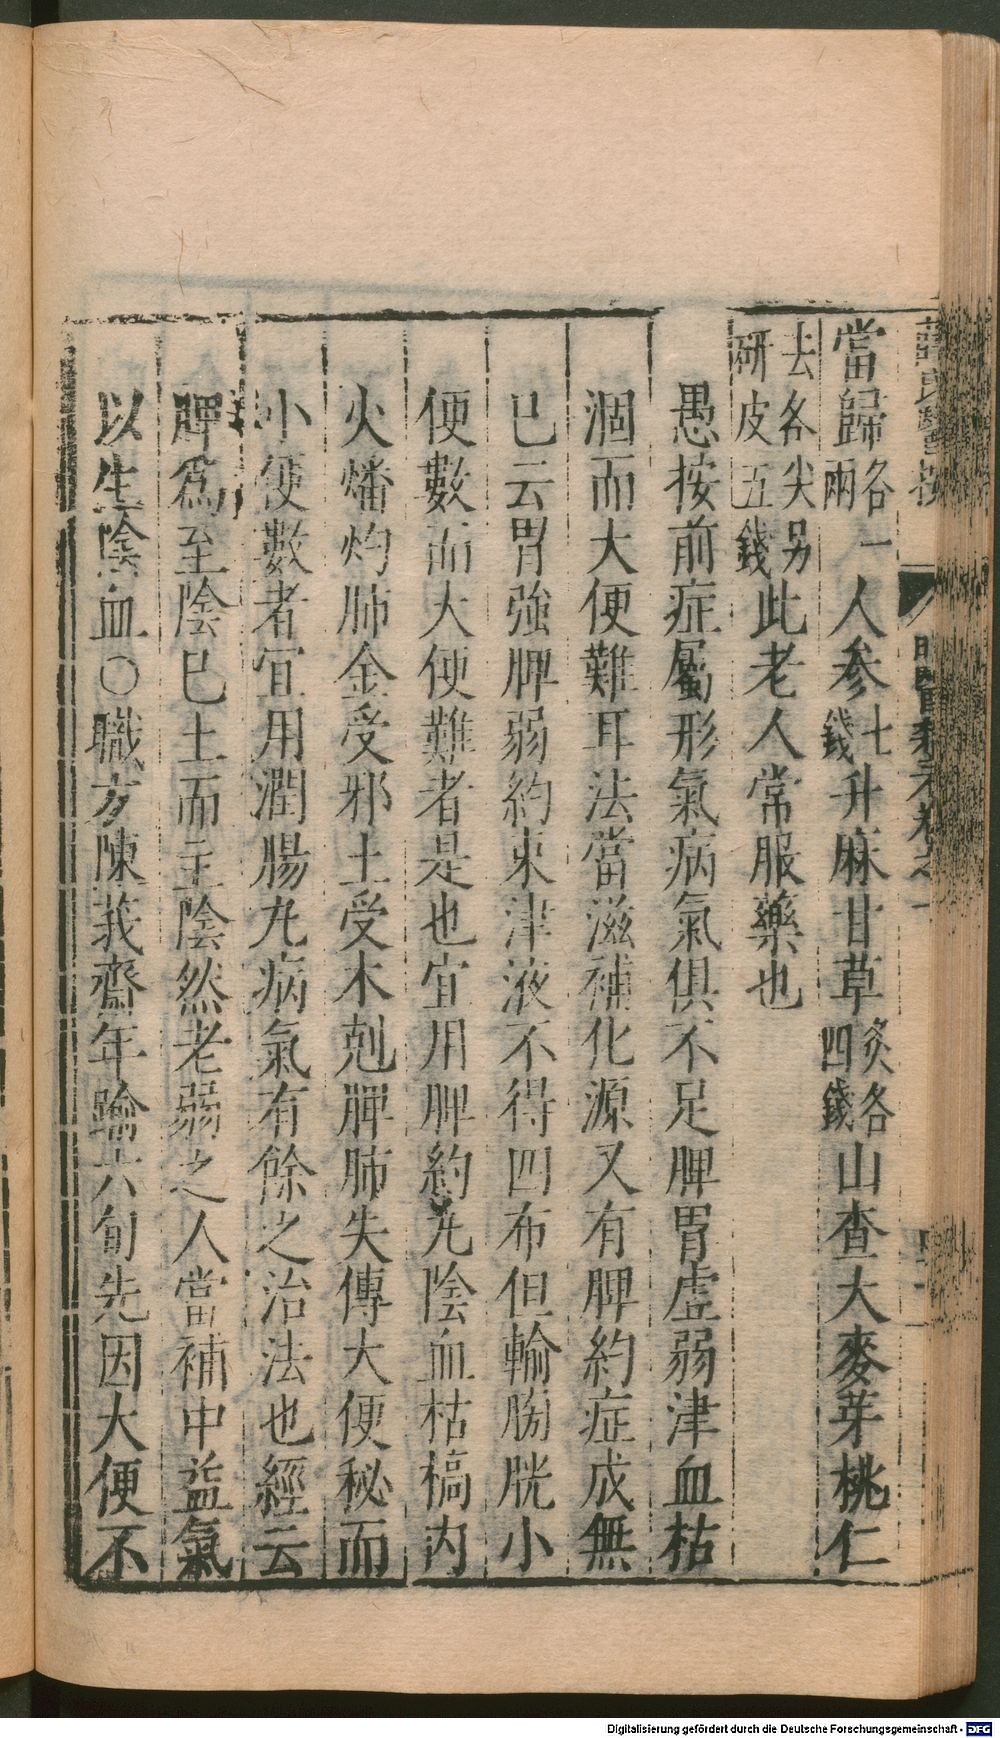 當歸各一兩人參七錢升麻甘草炙各四錢山查大麥芽桃仁
去各尖另研皮五錢此老人常服藥也
愚按前症屬形氣病氣俱不足脾胃虛弱津血枯
涸而大便難耳法當滋補化源又有脾約症成無
已云胃強脾弱約束津液不得四布但輸膀胱小
便數而大便難者是也宜用脾約丸陰血枯槁內
火燔灼肺金受邪土受木剋脾肺失傳大便秘而
小便數者宜用潤腸丸病氣有餘之治法也經云
脾爲至陰已土而主陰然老弱之人當補中益氣
以生陰血〇職方陳莪齋年踰六旬先因大便不
Digitalisierung gefördert durch die Deutsche Forschungsgemeinschaft - DFG